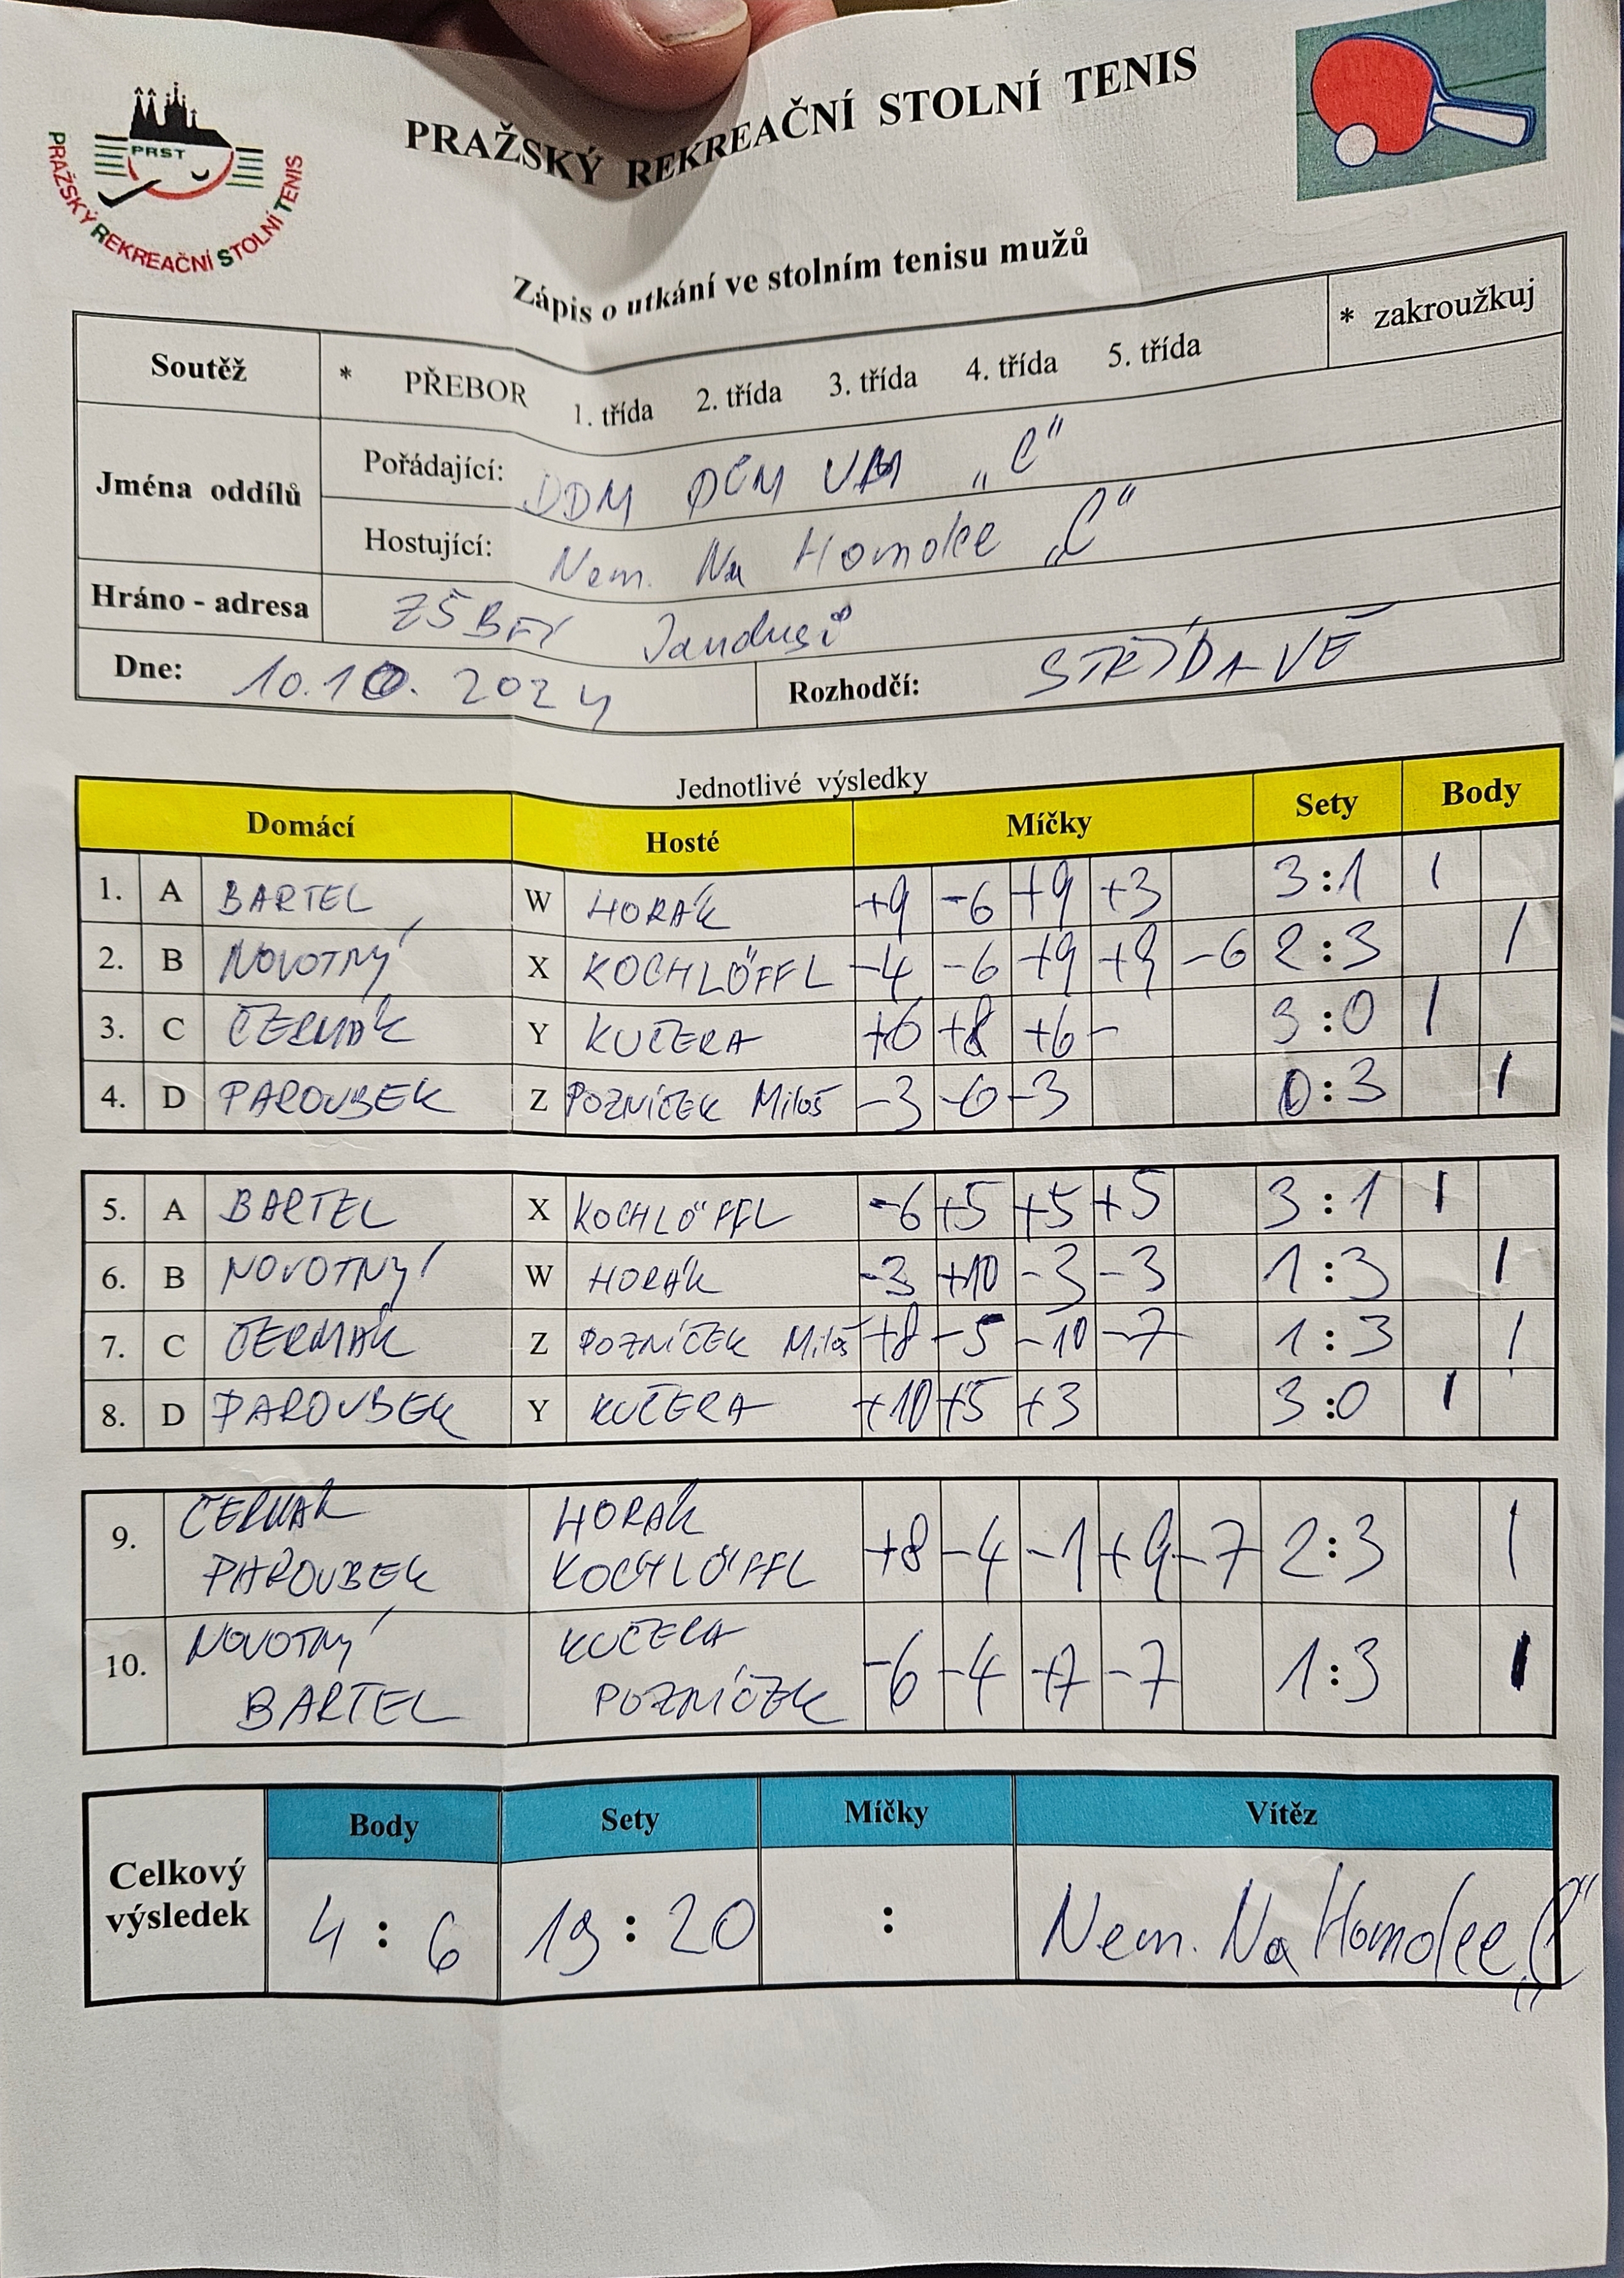 PRAŽSKÝ REKREAČNÍ STOLNÍ TENIS
PRST
PRAŽSKÝ REKREAČNÍ STOLNÍ TENIS
Zápis o utkání ve stolním tenisu mužů
Soutěž * PŘEBOR 1. třída 2. třída 3. třída 4. třída 5. třída * zakroužkuj
Jména oddílů
Pořádající: DDM DČM "C"
Hostující: Nem. Na Homolce „C"
Hráno - adresa ZŠ Jandusů
Dne: 10.10. 2024 Rozhodčí: STŘÍDAVĚ
Jednotlivé výsledky
Domácí Hosté Míčky Sety Body
1. A BARTEL W HORÁK +9 -6 +9 +3 3:1 1
2. B NOVOTNÝ X KOCHLÖFFL -4 -6 +9 +9 -6 2:3 1
3. C ČERMÁK Y KUČERA +6 +8 +6 - 3:0 1
4. D PAROUBEK Z POZNÍČEK Miloš -3 -6 -3 0:3 1
5. A BARTEL X KOCHLÖFFL -6 +5 +5 +5 3:1 1
6. B NOVOTNÝ W HORÁK -3 +10 -3 -3 1:3 1
7. C ČERMÁK Z POZNÍČEK Miloš +8 -5 -10 -7 1:3 1
8. D PAROUBEK Y KUČERA +10 +5 +3 3:0 1
9. ČERMÁK HORÁK +8 -4 -1 +9 -7 2:3 1
PAROUBEK KOCHLÖFFL
10. NOVOTNÝ KUČERA -6 -4 +7 -7 1:3 1
BARTEL POZNÍČEK
Celkový výsledek
Body Sety Míčky Vítěz
4 : 6 19 : 20 : Nem. Na Homolce „C"